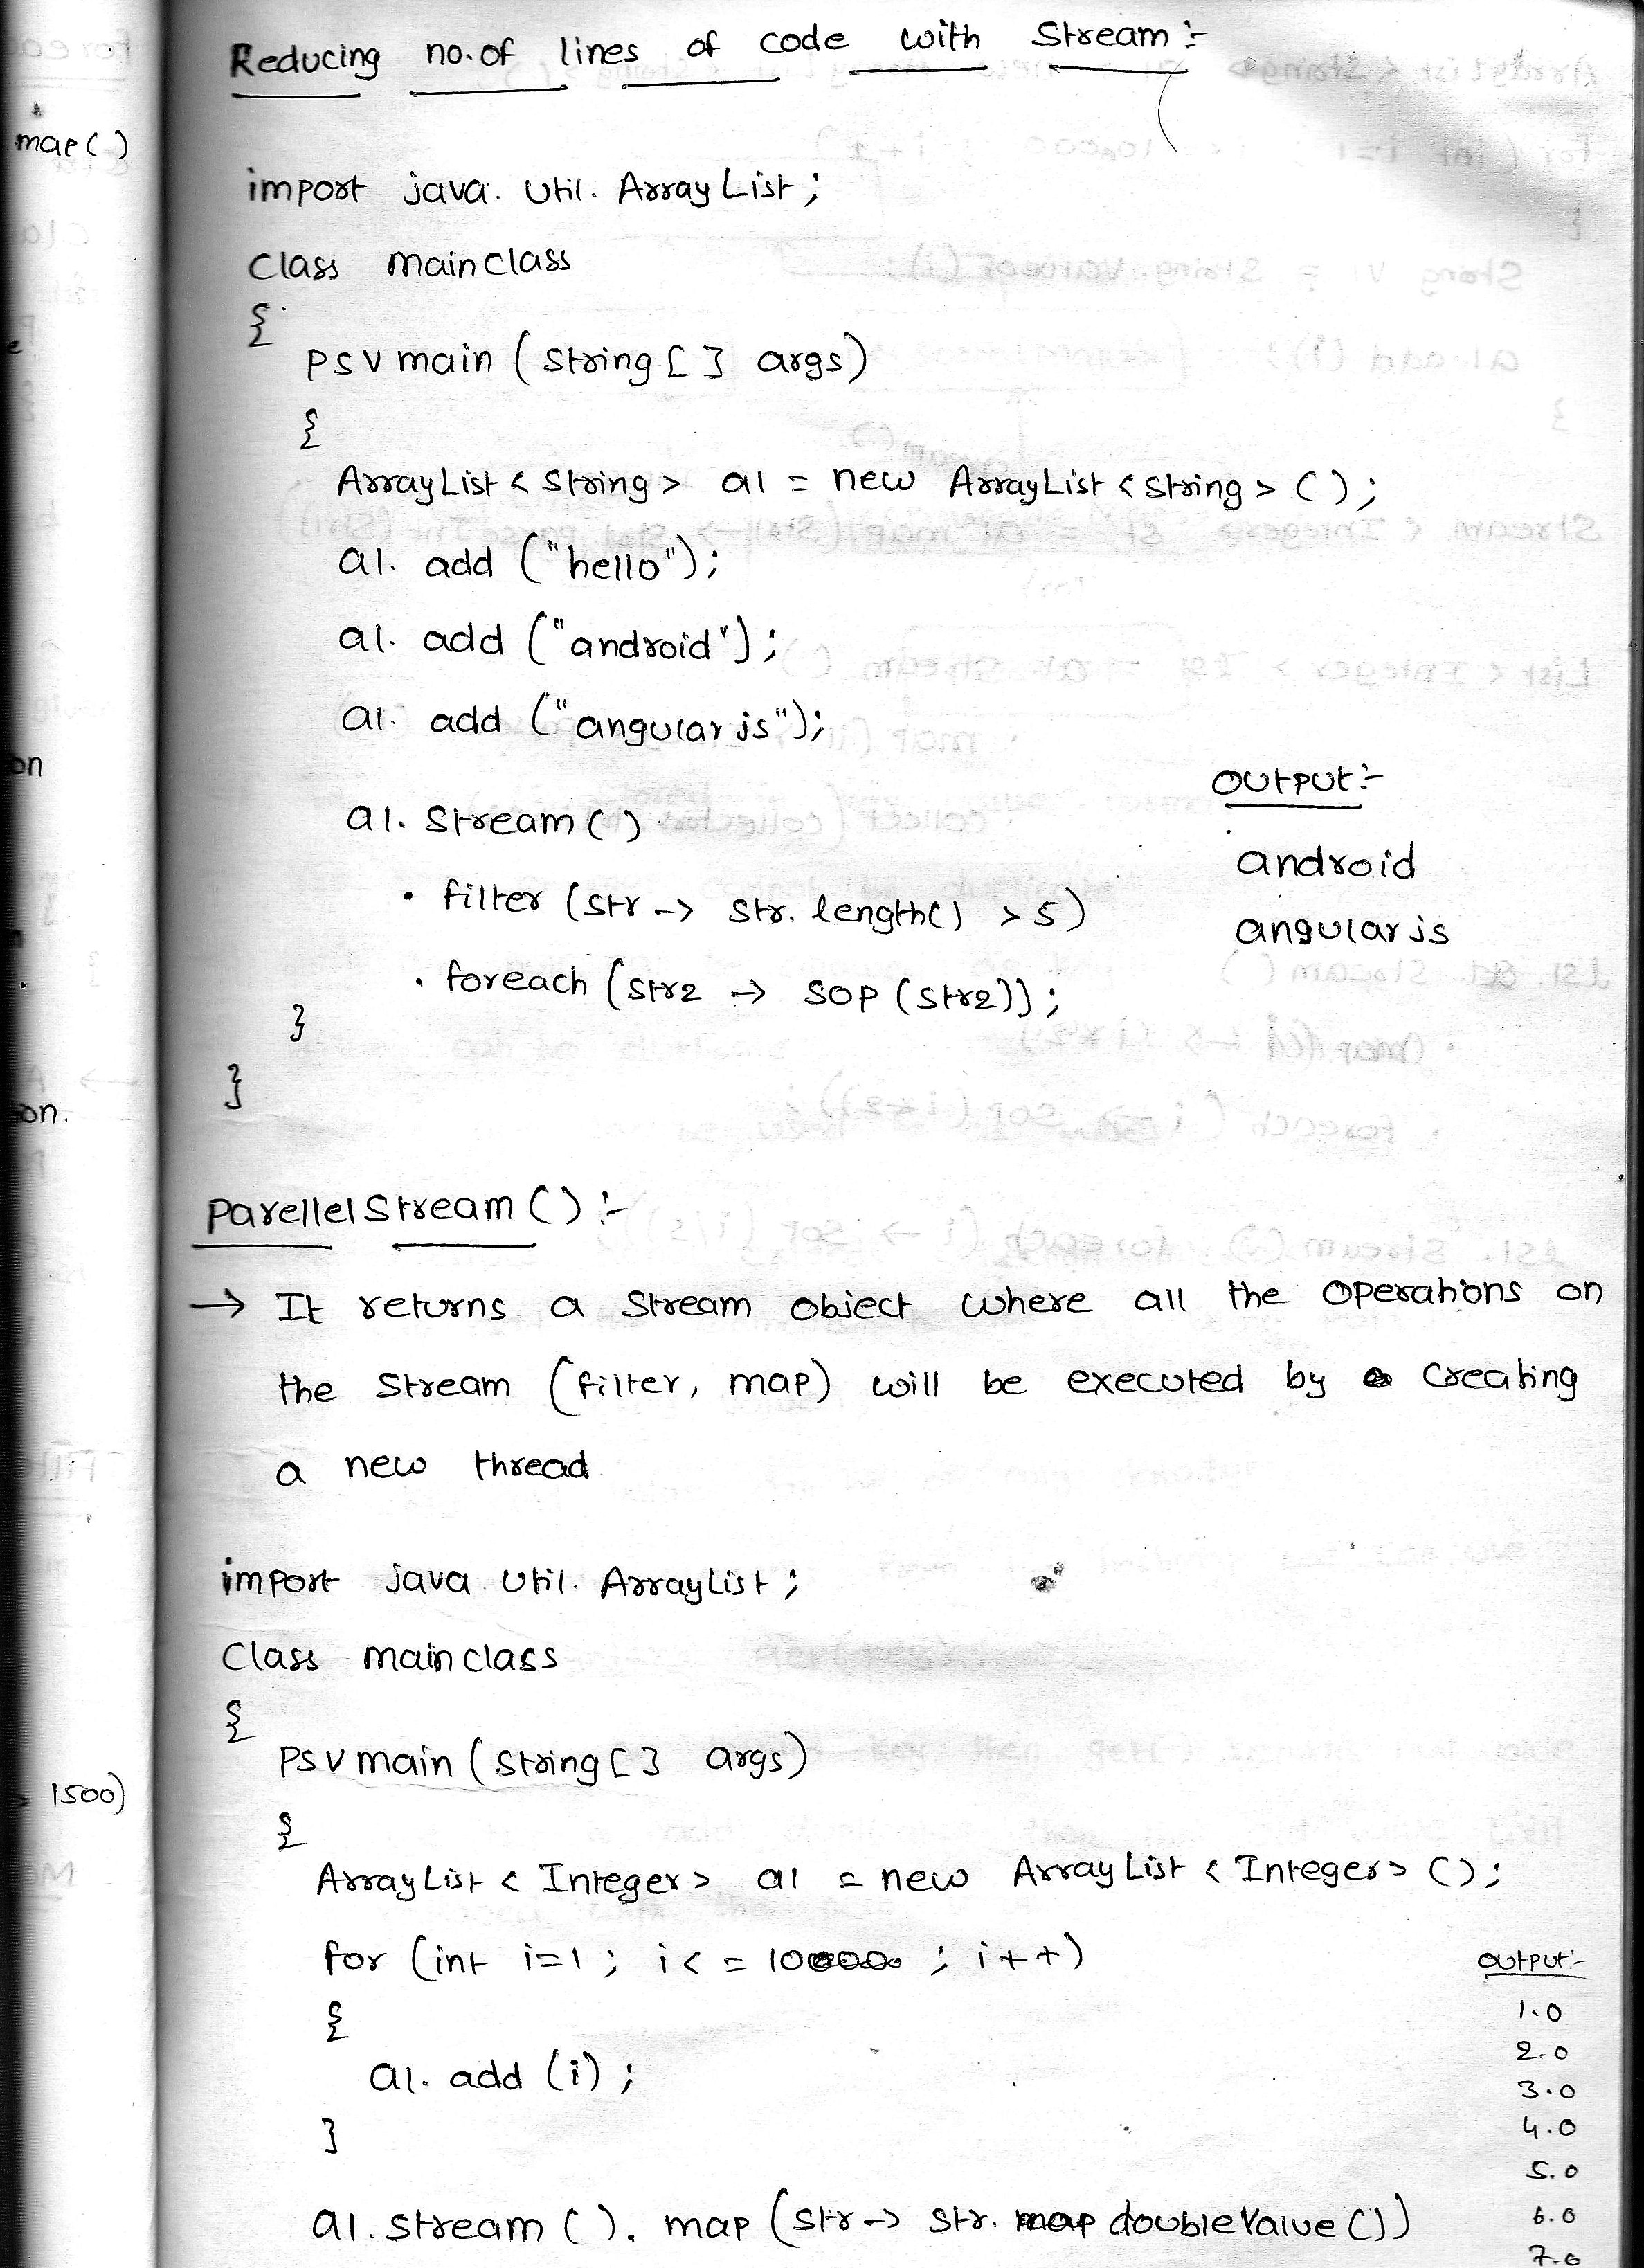 Reducing no.of lines of code with Stream :-
map()
import java. util. ArrayList ;
Class mainclass
{
psv main ( string [ ] args)
{
ArrayList < String > al = new ArrayList < string > ( ) ;
al. add ("hello");
al. add ("android");
al. add ("angular js");
on
output :-
al. Stream ( )
android
. filter (str -> str. length() > 5)
angular js
. foreach (str2 -> SOP (str2)) ;
}
}
on.
Parellel Stream ( ) :-
-> It returns a Stream object where all the operations on
the Stream (filter, map) will be executed by creating
a new thread
import java util. ArrayList ;
Class mainclass
{
psv main ( string [ ] args)
1500)
{
ArrayList < Integer > al = new ArrayList < Integer > ( ) ;
for (int i=1 ; i < = 10000 ; i++)
output:-
1.0
{
2.0
al. add (i) ;
3.0
4.0
}
5.0
al. stream ( ). map (str -> str. doubleValue ( ))
6.0
7.0